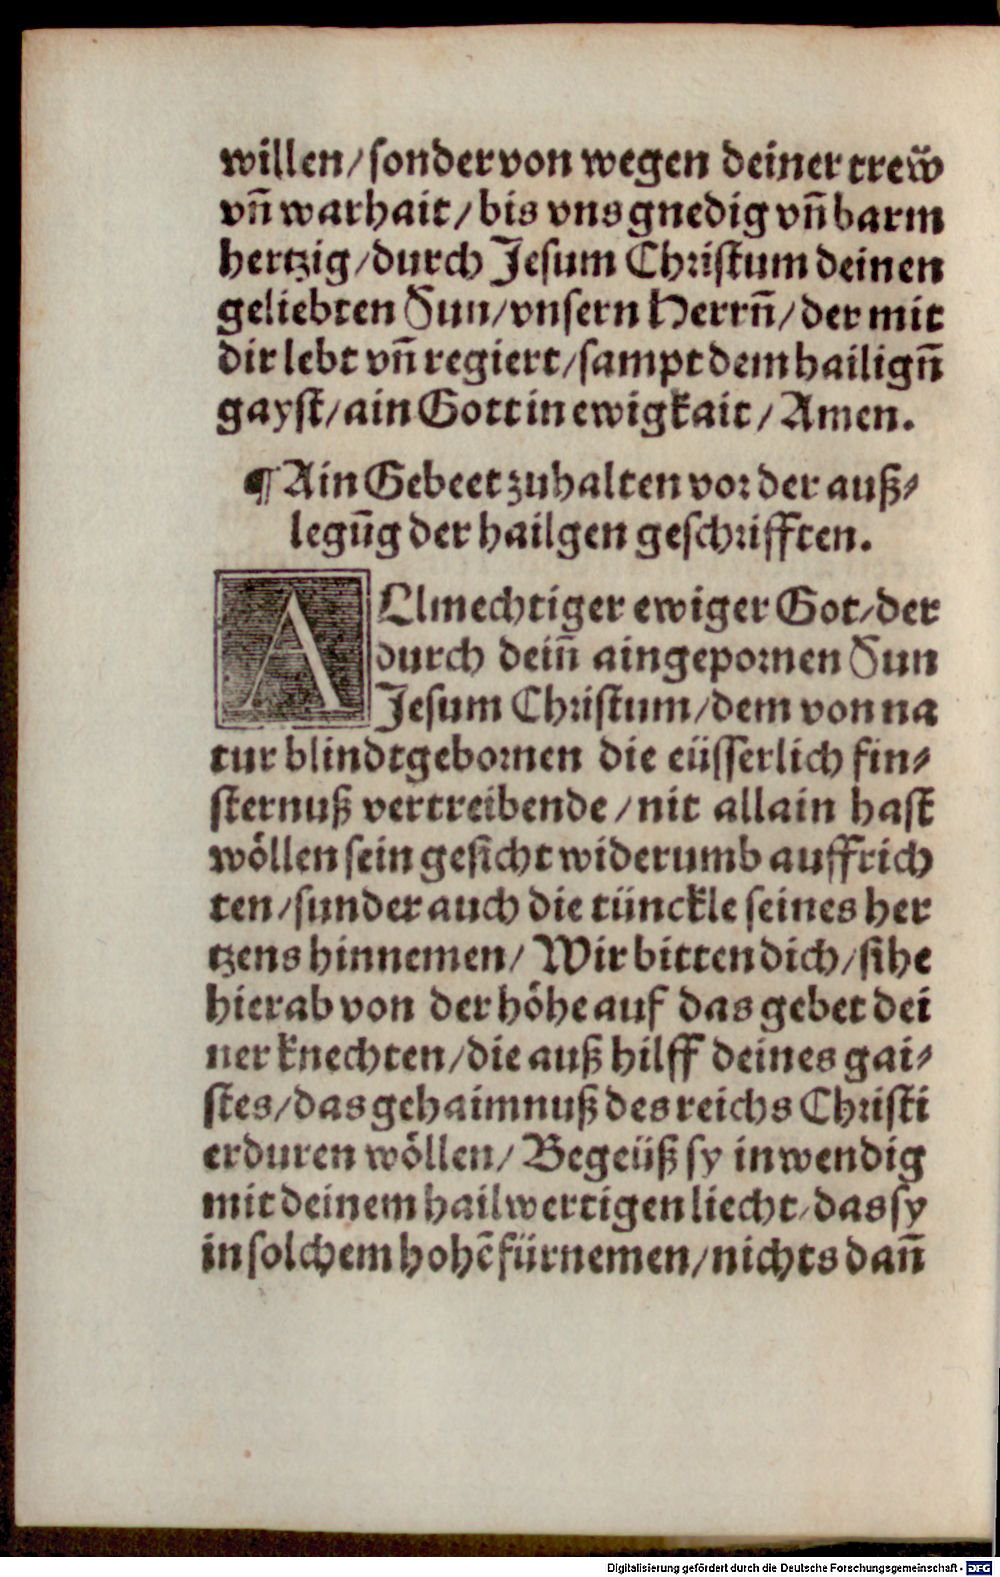 willen/ sonder von wegen deiner trew̃
vñ warhait/ bis vns gnedig vñ barm
hertzig/ durch Jesum Christum deinen
geliebten Sun/ vnsern Herrñ/ der mit
dir lebt vñ regiert/ sampt dem hailigñ
gayst/ ain Gott in ewigkait/ Amen.
¶ Ain Gebeet zuhalten vor der auß⸗
legũg der hailgen geschrifften.
ALlmechtiger ewiger Got/ der
durch deiñ aingepornen Sun
Jesum Christum/ dem von na
tur blindtgebornen die eüsserlich fin⸗
sternuß vertreibende/ nit allain hast
wöllen sein gesicht widerumb auffrich
ten/ sunder auch die tünckle seines her
tzens hinnemen/ Wir bitten dich/ sihe
hierab von der höhe auf das gebet dei
ner knechten/ die auß hilff deines gai⸗
stes/ das gehaimnuß des reichs Christi
erduren wöllen/ Begeüß sy inwendig
mit deinem hailwertigen liecht/ das sy
in solchem hohẽ fürnemen/ nichts dañ
Digitalisierung gefördert durch die Deutsche Forschungsgemeinschaft - DFG